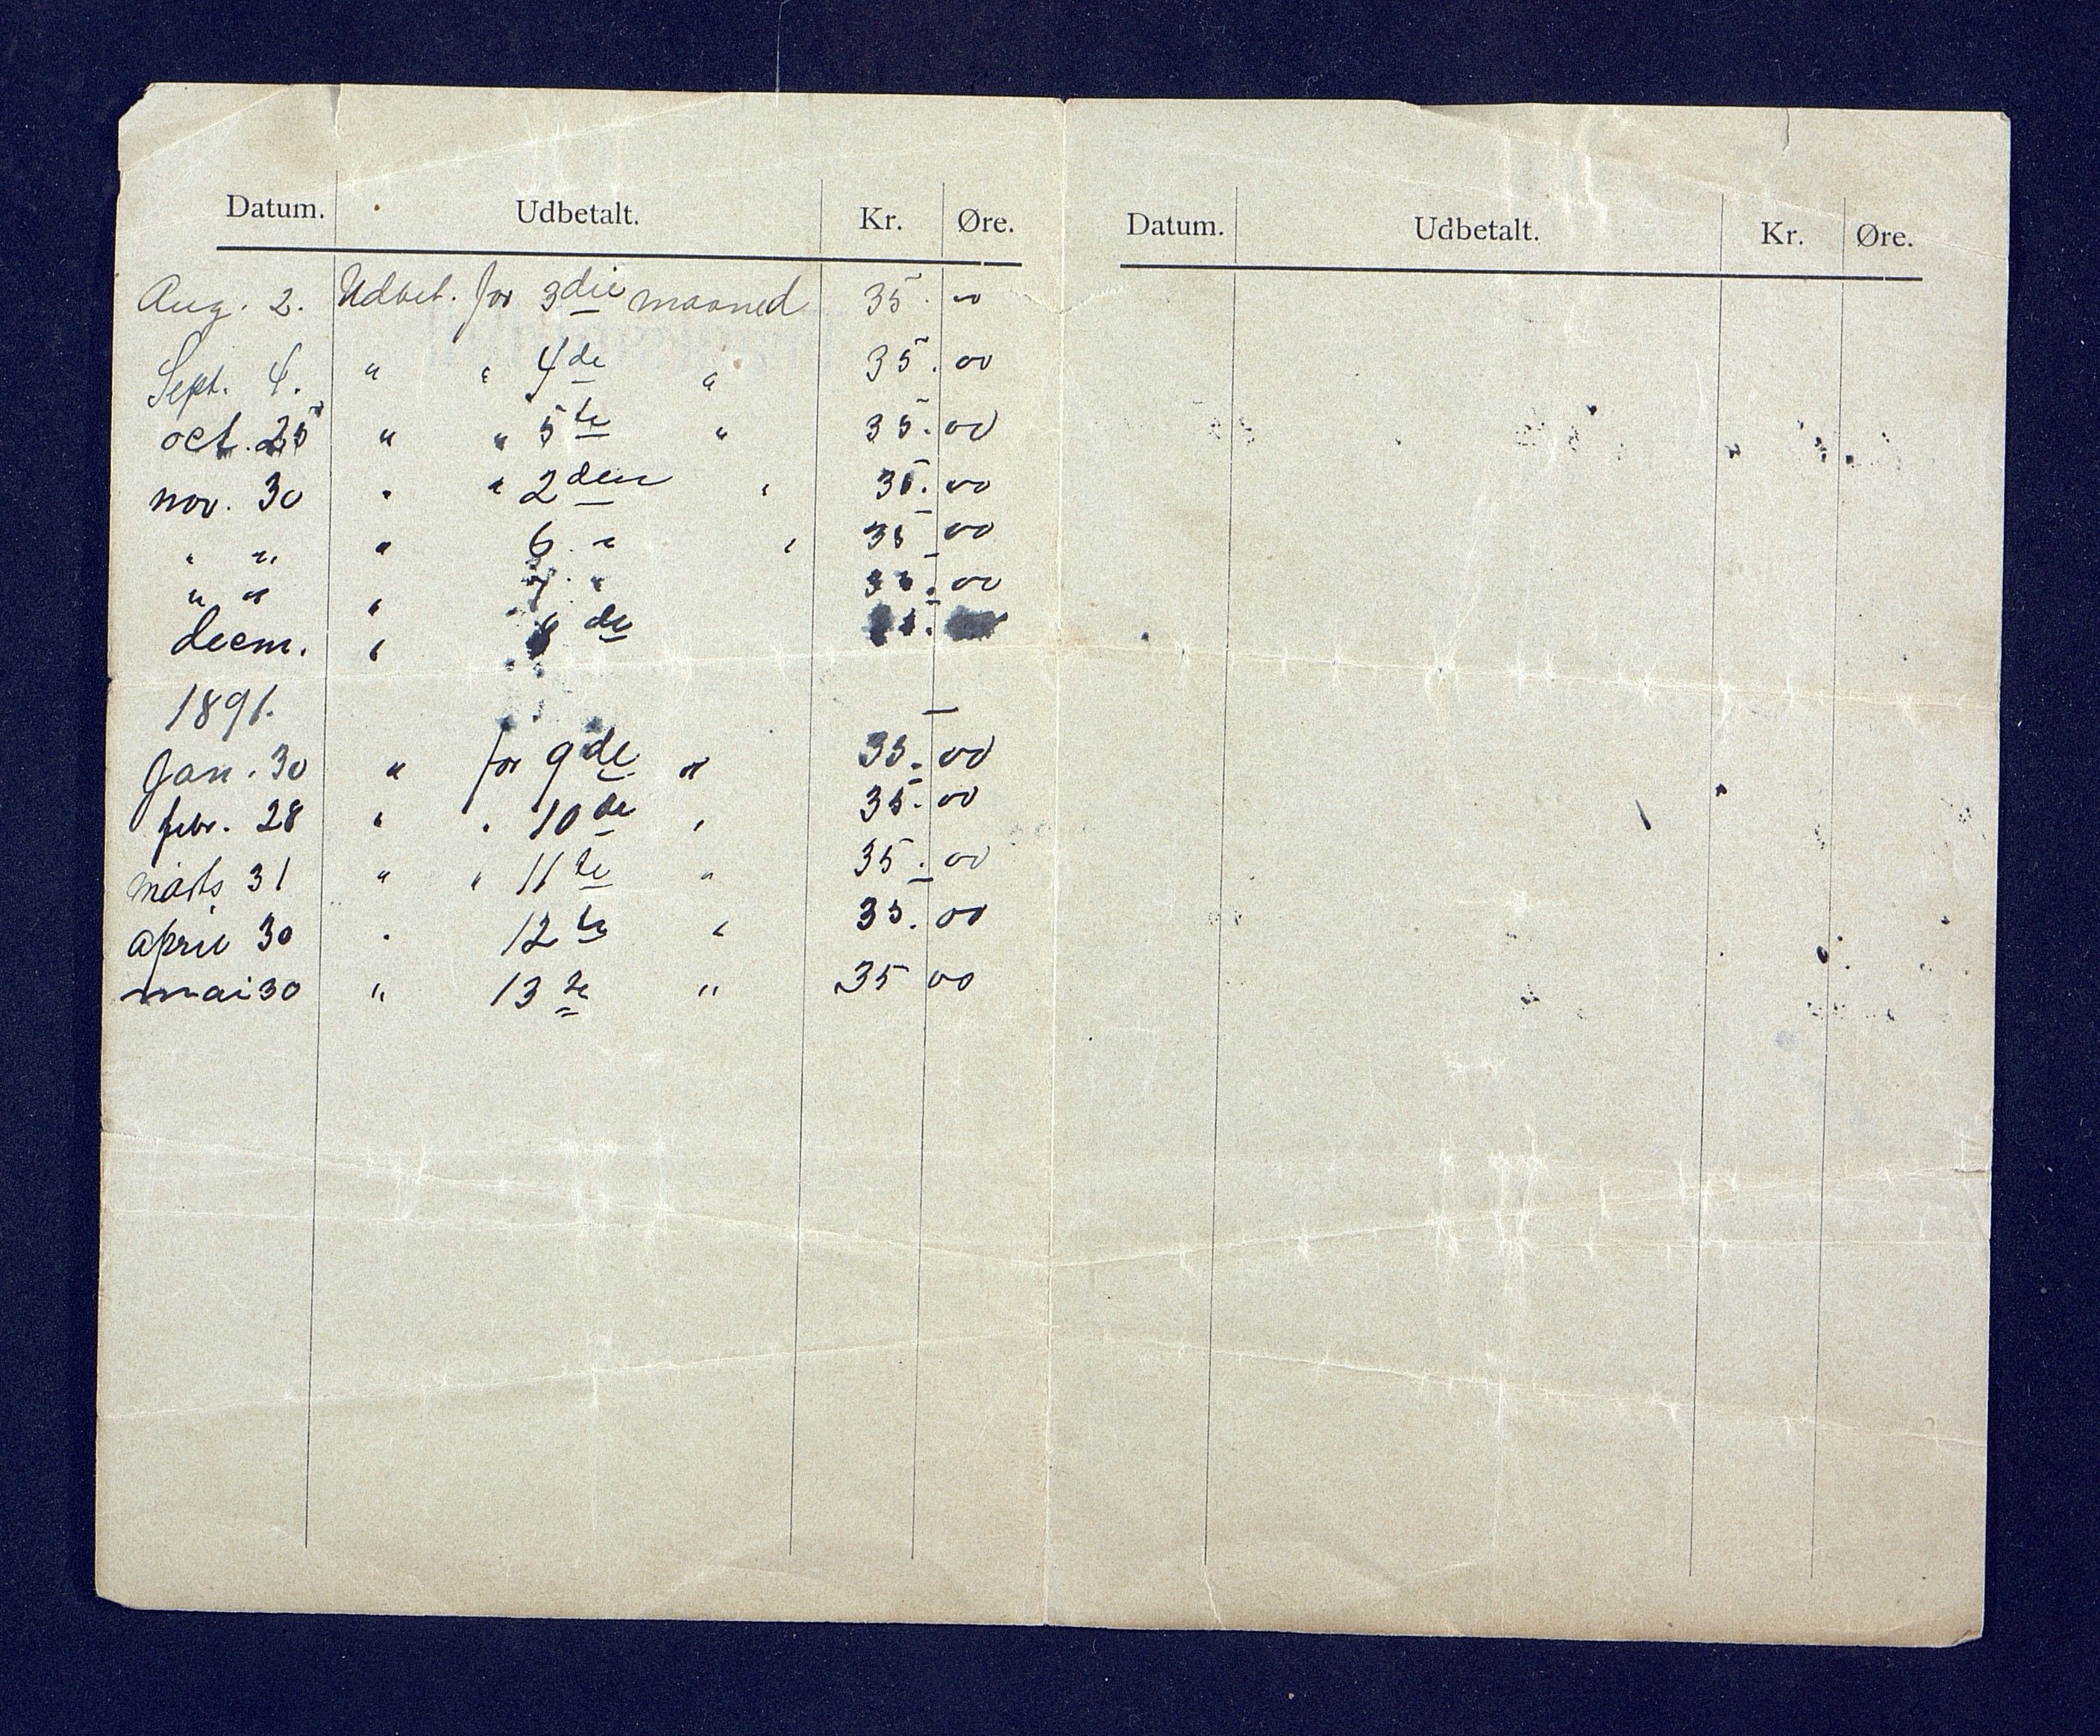 Datum. Udbetalt. Kr. Øre.
Aug. 2. Udbet. for 3die maaned 35. 00
Sept. 4. " " 4de " 35. 00
oct. 25 " " 5te " 35. 00
nov. 30 " " 2den " 35. 00
" " " 6 " " 35 00
" " " 7. " 35. 00
decm. " 8 de
1891.
Jan. 30 " for 9de " 35. 00
febr. 28 " " 10de " 35. 00
marts 31 " " 11te " 35. 00
april 30 " 12te " 35. 00
mai 30 " 13de " 35 00
Datum. Udbetalt. Kr. Øre.